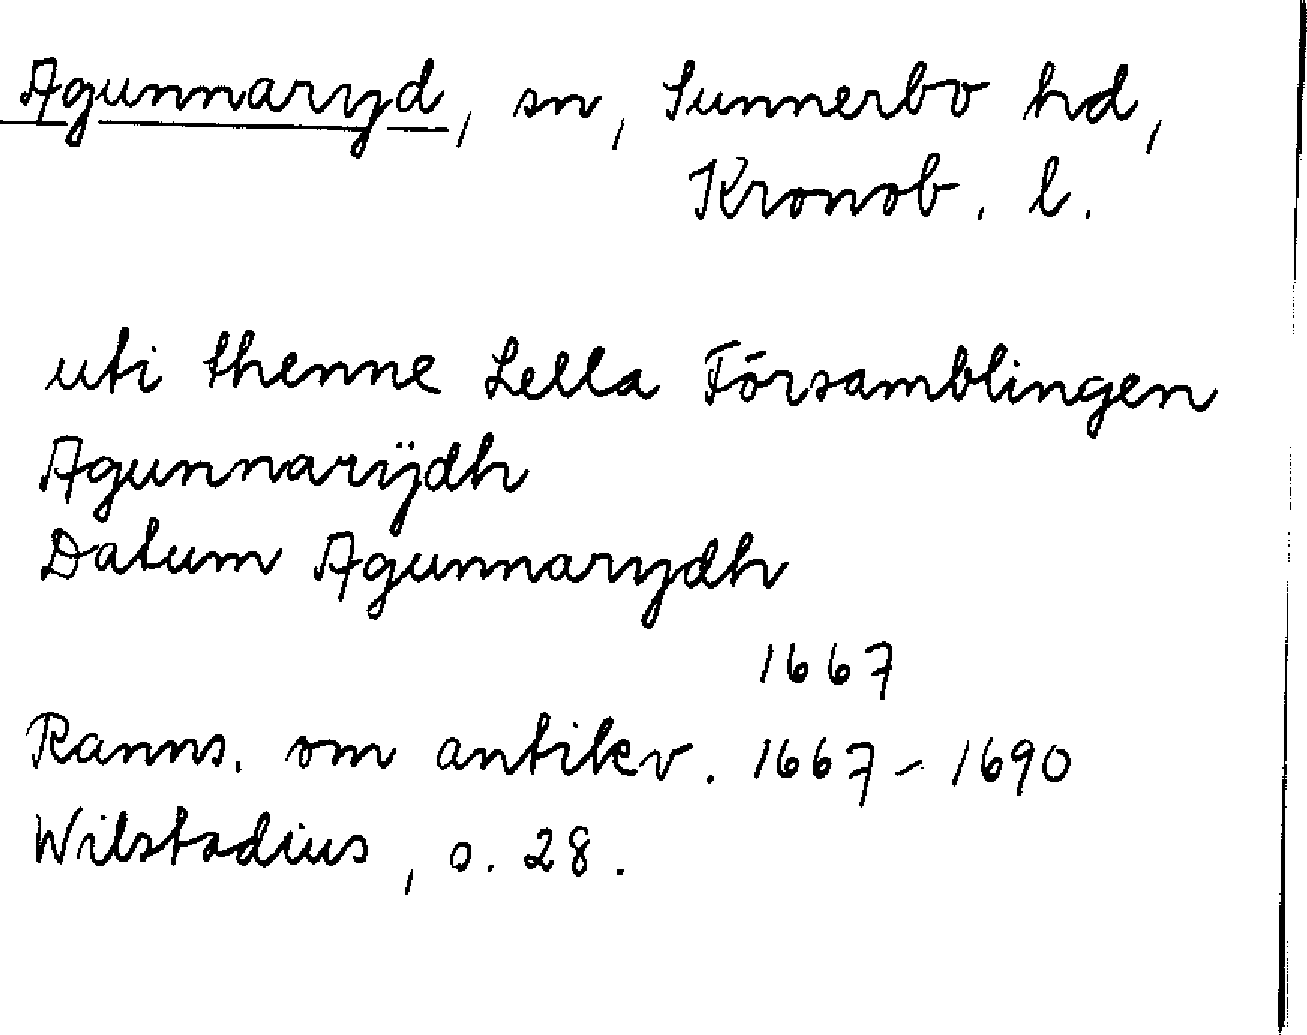 Agunnaryd, sn, Sunnerbo hd,
Kronob. l.
uti thenne Lella Församblingen
Agunnarÿdh
Datum Agunnarydh
1667
Ranns. om antikv. 1667-1690
Wilstadius, s. 28.